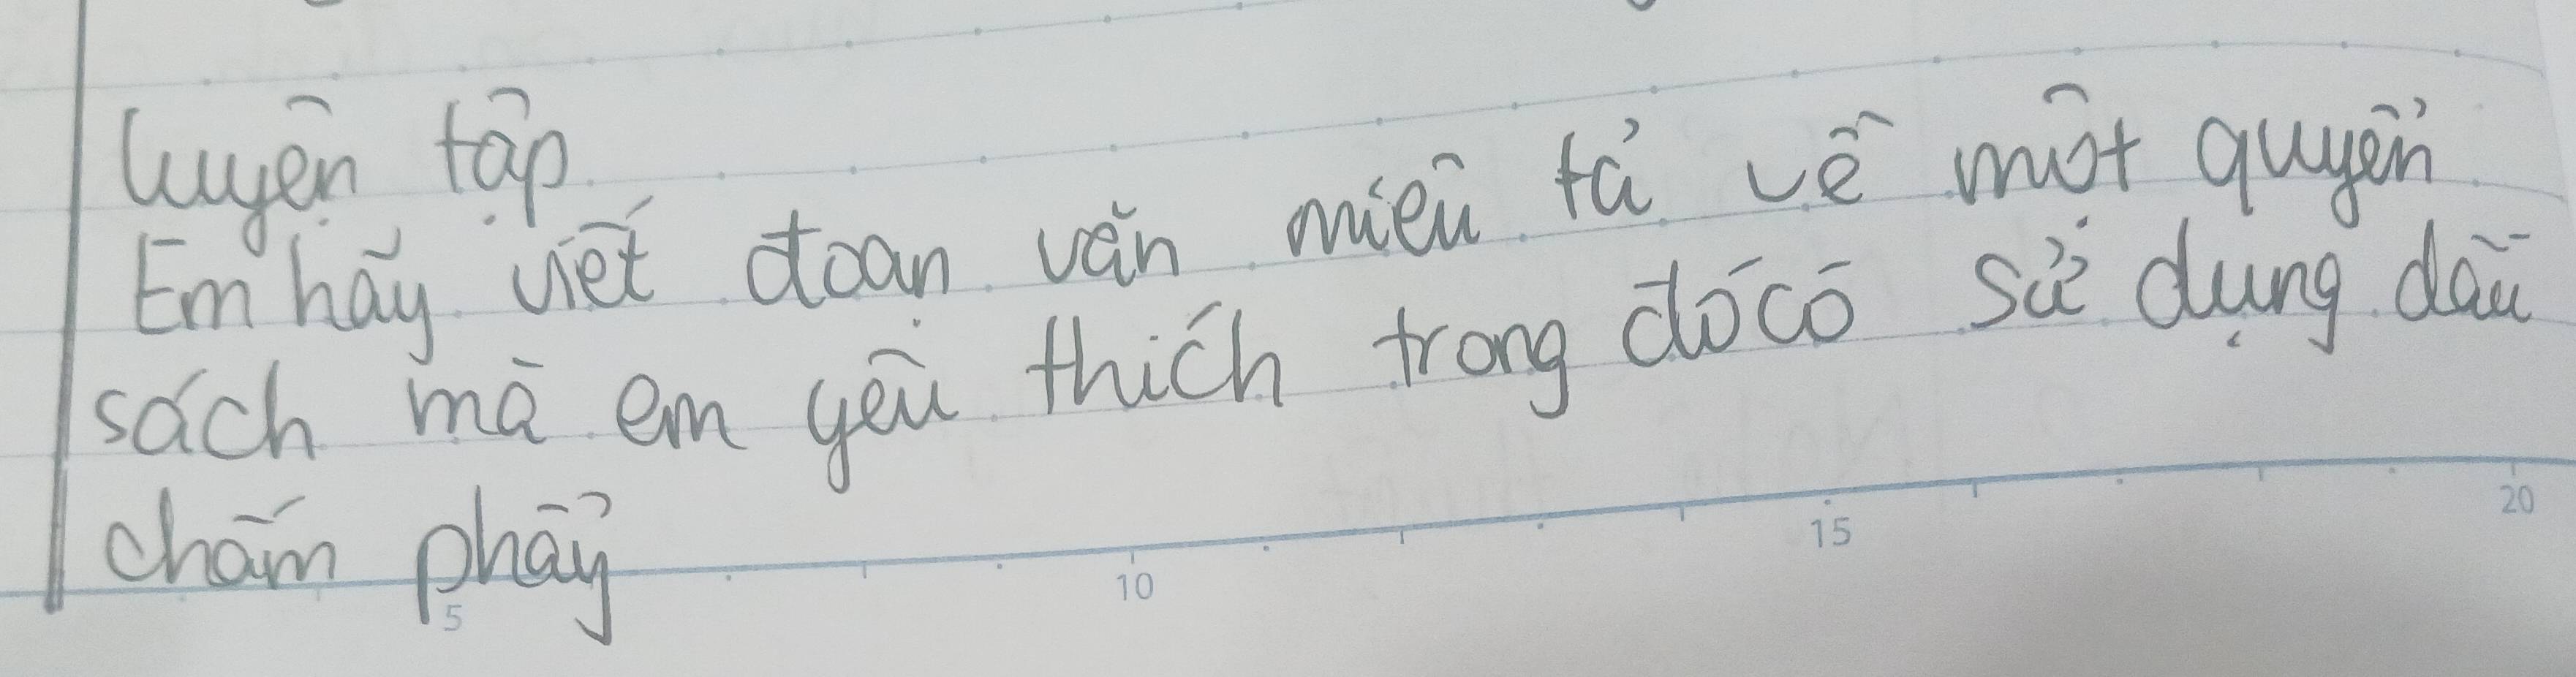 luyện tập
Em hãy viết đoạn văn miêu tả về một quyển
sách mà em yêu thích trong đó có sử dụng dấu
chấm phẩy
5 10 15 20